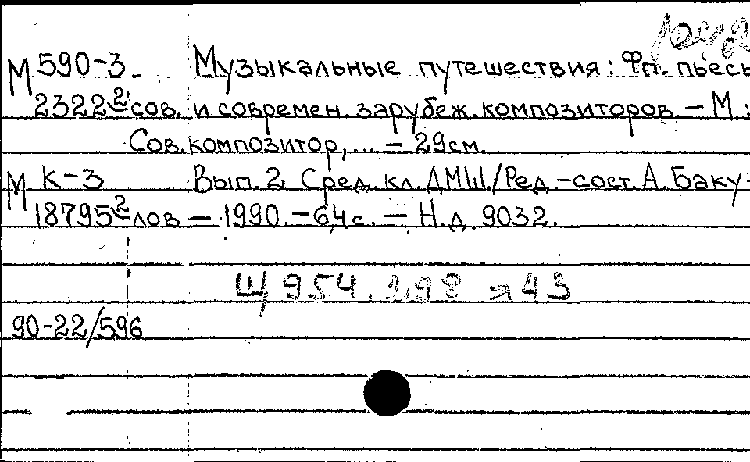 М 590-3 Музыкальные путешествия: Фп. пьесы
2322² сов. и современ. зарубеж. композиторов. – М.:
Сов. композитор, ... – 29см.
М К-3 Вып. 2. Сред. кл. ДМШ./Ред.-сост. А. Баку-
18795² лов – 1990. – 64с. – Н.д. 9032.
Щ954.198 я43
90-22/596